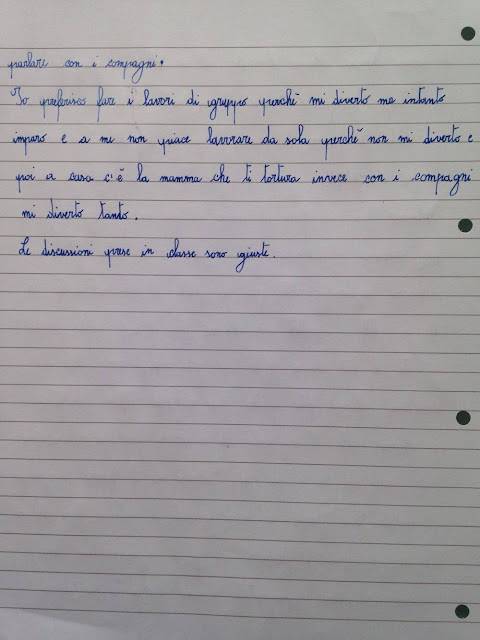 parlare con i compagni.
Io preferisco fare i lavori di gruppo perchè mi diverto ma intanto
imparo e a me non piace lavorare da sola perchè non mi diverto e
poi a casa c'è la mamma che ti tortura invece con i compagni
mi diverto tanto.
Le discussioni prese in classe sono giuste.